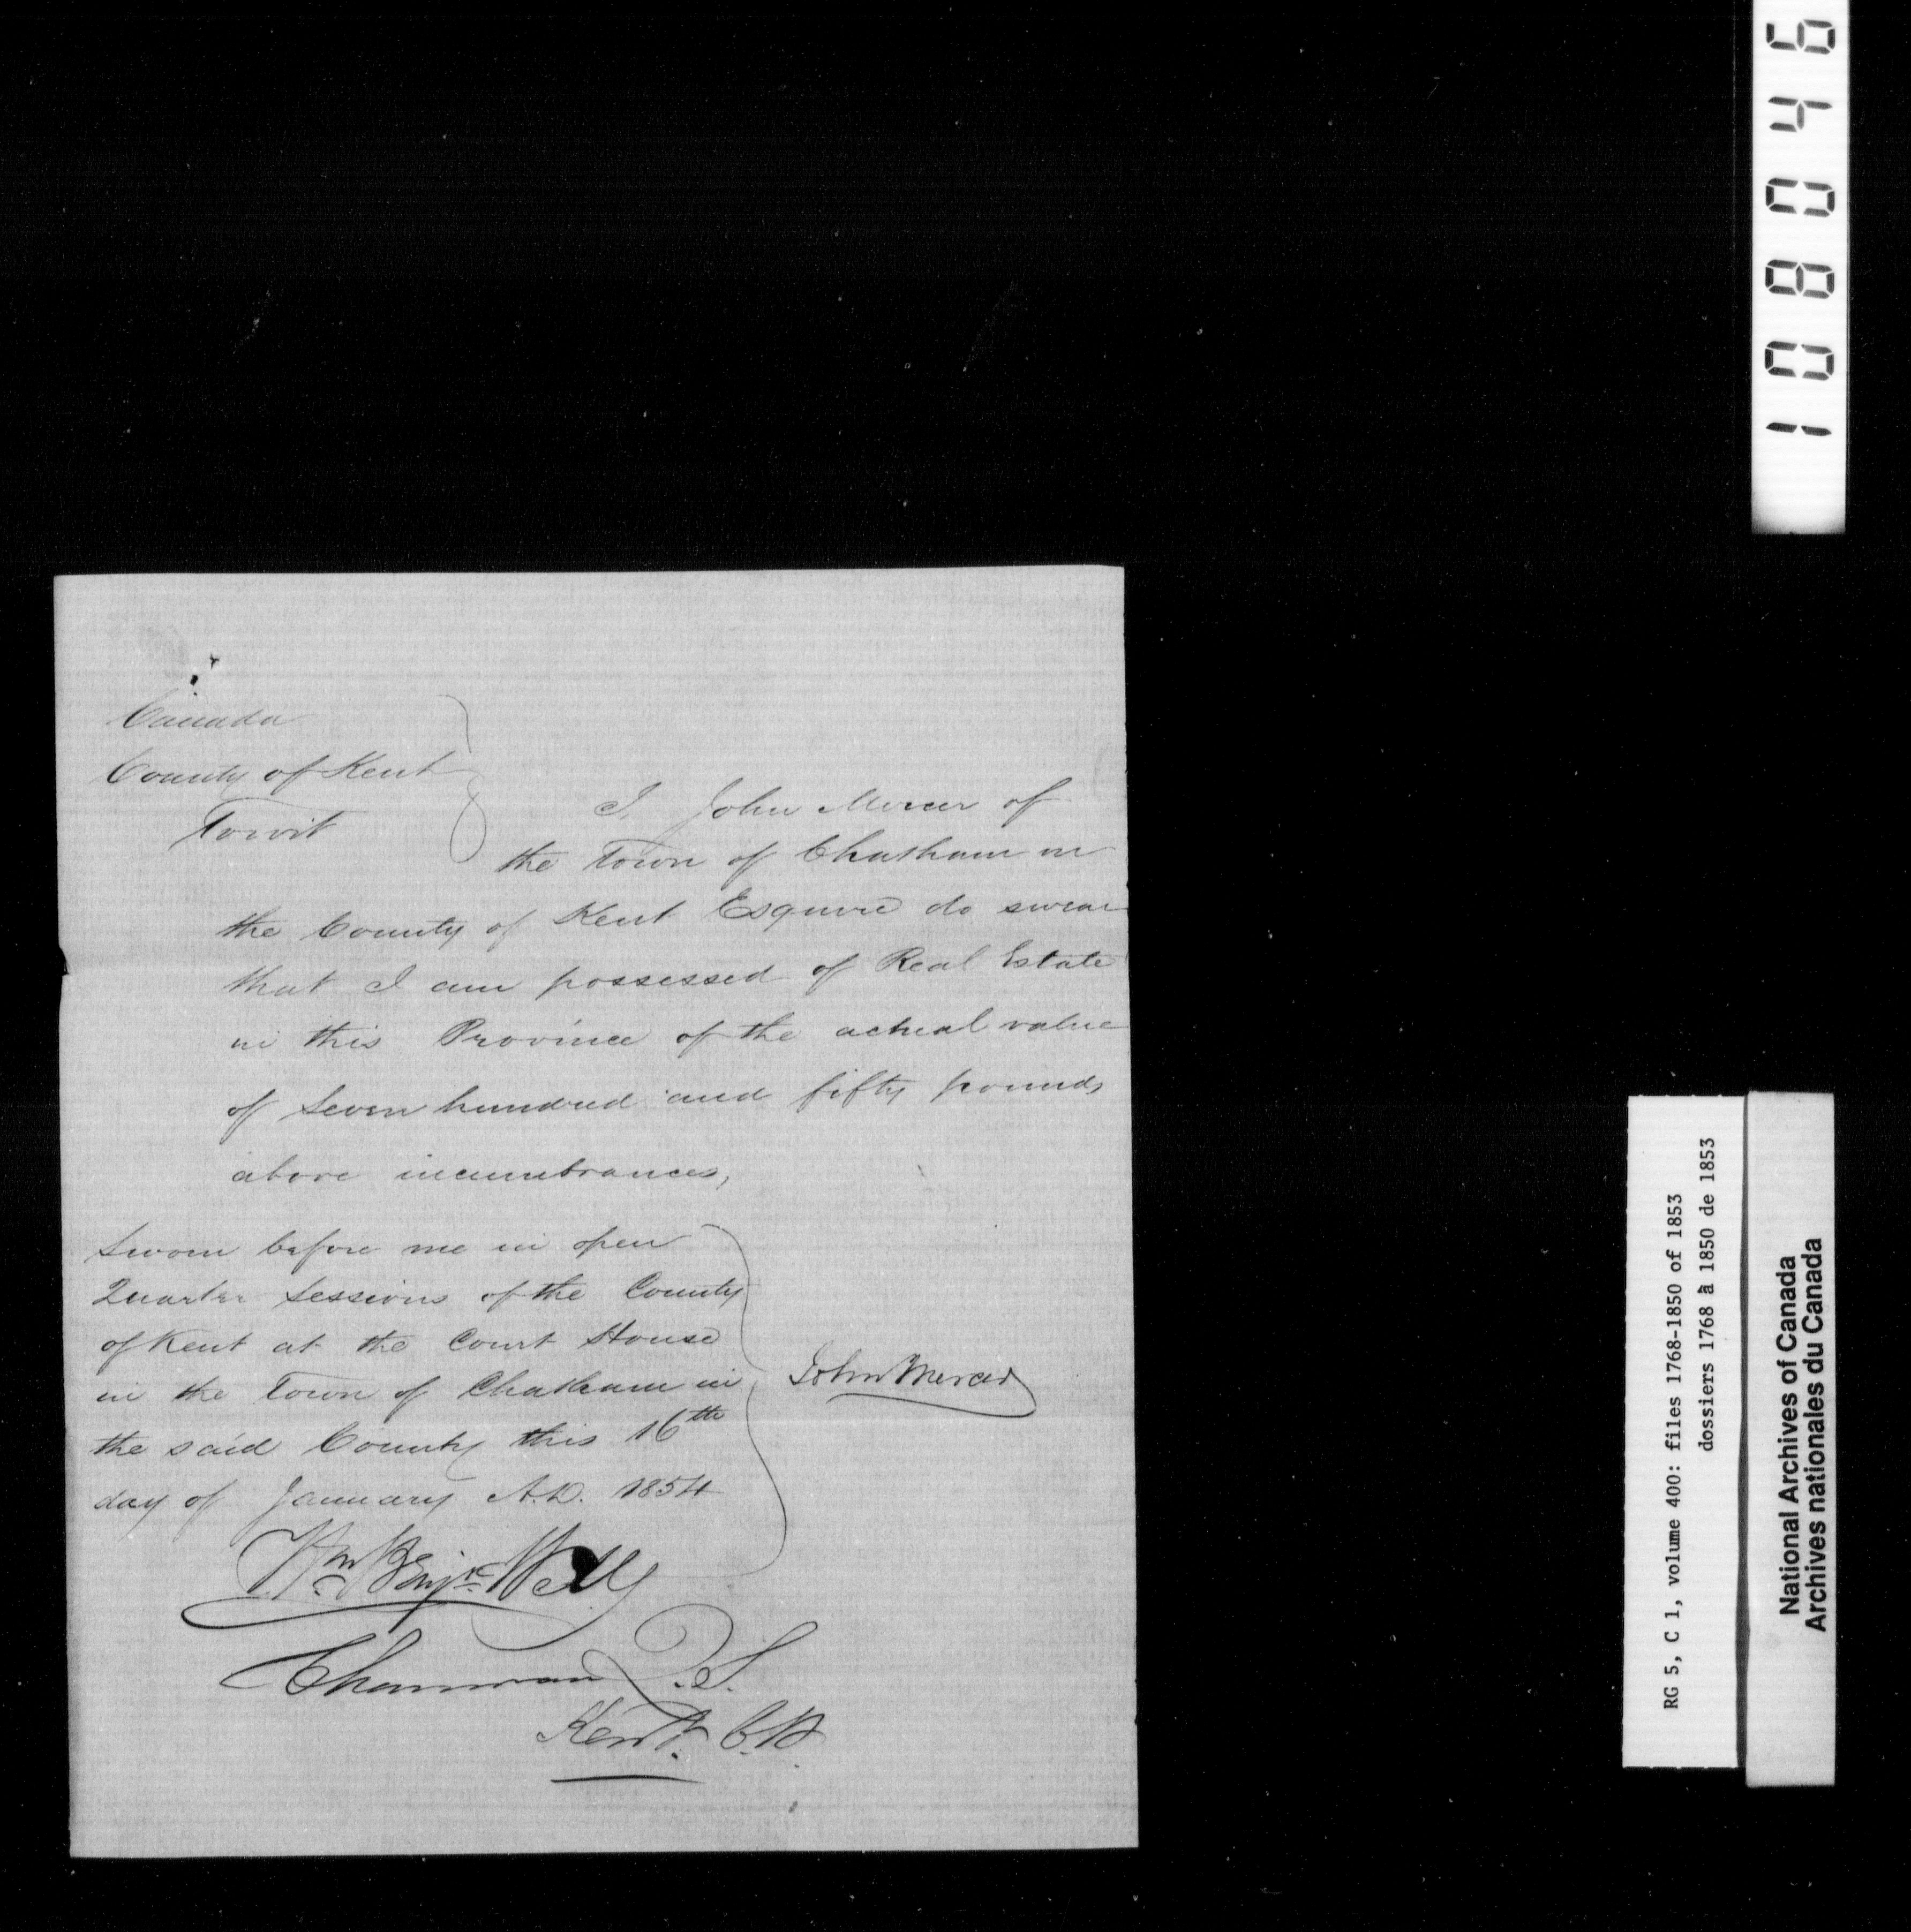 Canada
County of Kent
Towit
I, John Mercer of
the Town of Chatham in
the County of Kent Esquire do swear
that I am possessed of Real Estate
in this Province of the actual value
of Seven hundred and fifty pounds
above incumbrances,
Sworn before me in open
Quarter Sessions of the County
of Kent at the Court House
in the Town of Chatham in
the said County this 16th
day of January A.D. 1854
John Mercer
Wm Benjn Wells
Chairman Q.S.
Kent.
108046
RG 5, C 1, volume 400: files 1768-1850 of 1853
dossiers 1768 à 1850 de 1853
National Archives of Canada
Archives nationales du Canada